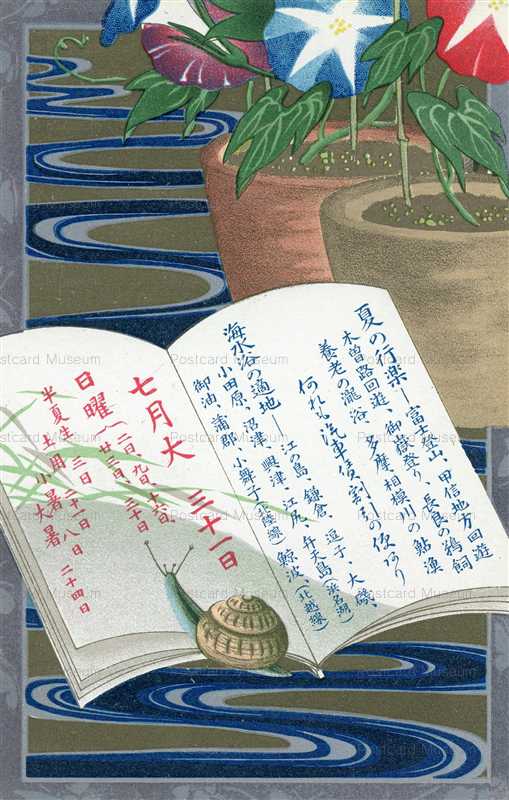 夏の行楽―富士登山、甲信地方回遊
木曽路回遊、御嶽登り、長良の鵜飼
養老の瀧浴、多摩、相模川の鮎漁
何れも汽車賃割引の便あり
海水浴の適地―江の島、鎌倉、逗子、大磯、
小田原、沼津、興津、江尻、弁天島(浜名湖)
御油、蒲郡、小舞子(北陸線)鯨波(北越線)
七月大 三十一日
日曜(二日、九日、十六日、廿三日、三十日
半夏生 三日
土用 二十一日
小暑 八日
大暑 二十四日
Postcard Museum